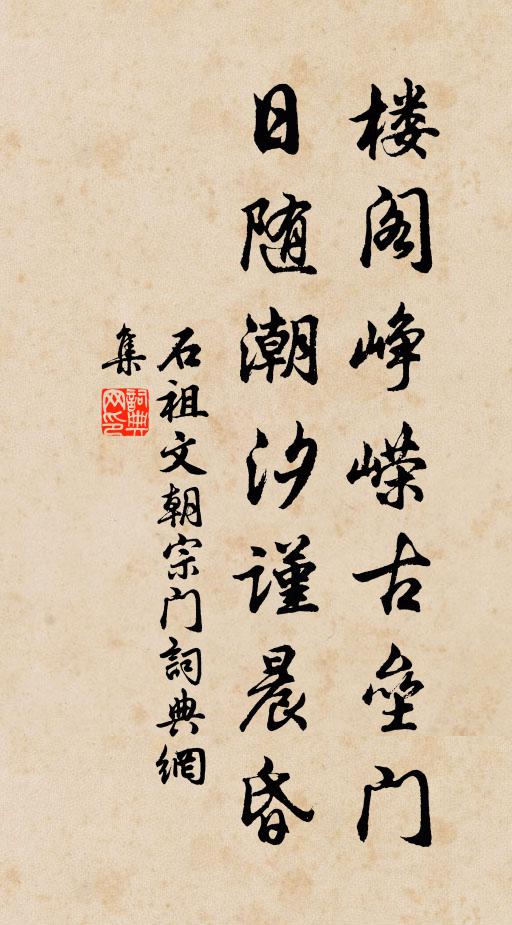 楼阁峥嵘古垒门
日随潮汐谨晨昏
石祖文朝宗门詞典網
集
詞典
网印